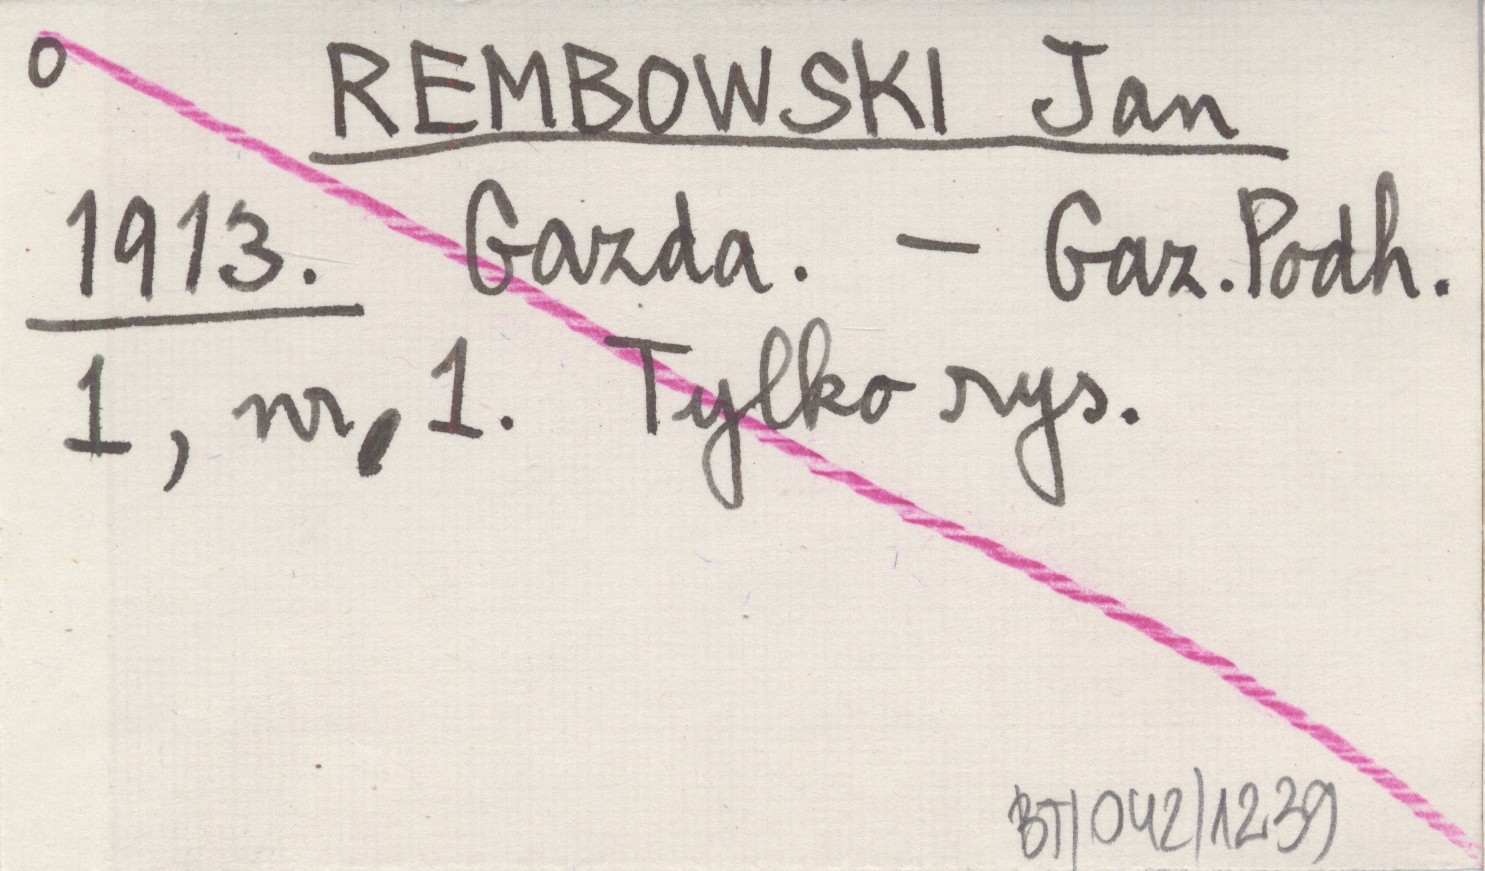 o REMBOWSKI Jan
1913. Gazda. – Gaz.Podh.
1, nr, 1. Tylko rys.
BT/042/1239